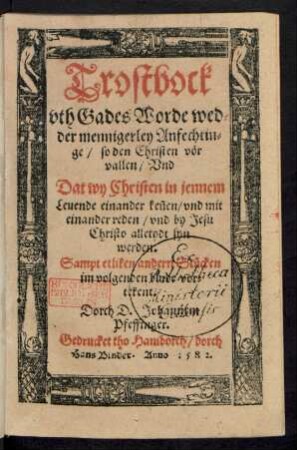 Trostbock
vth Gades Worde wed-
der mennigerley Anfechtin-
ge / so den Christen vör
vallen / Vnd
Dat wy Christen in jennem
Leuende einander keñen / vnd mit
einander reden / vnd by Jesu
Christo alletodt syn
werden.
Sampt etliken andern Stücken
im volgenden
tekent.
Dorch D. Johannem
Pfeffinger.
Gedrucket tho Hamborch / dorch
Hans Binder. Anno 1582.
Ex
Ministerii